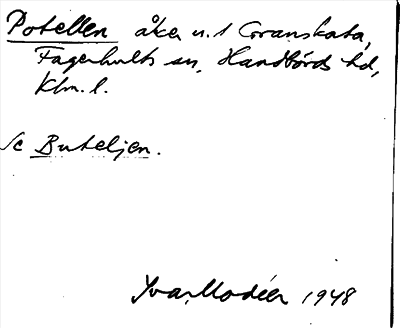 Potellen åker u. t Granskata,
Fagerhults sn, Handbörds hd,
Klm. l.
Se Buteljen.
Yvar Modéer 1948